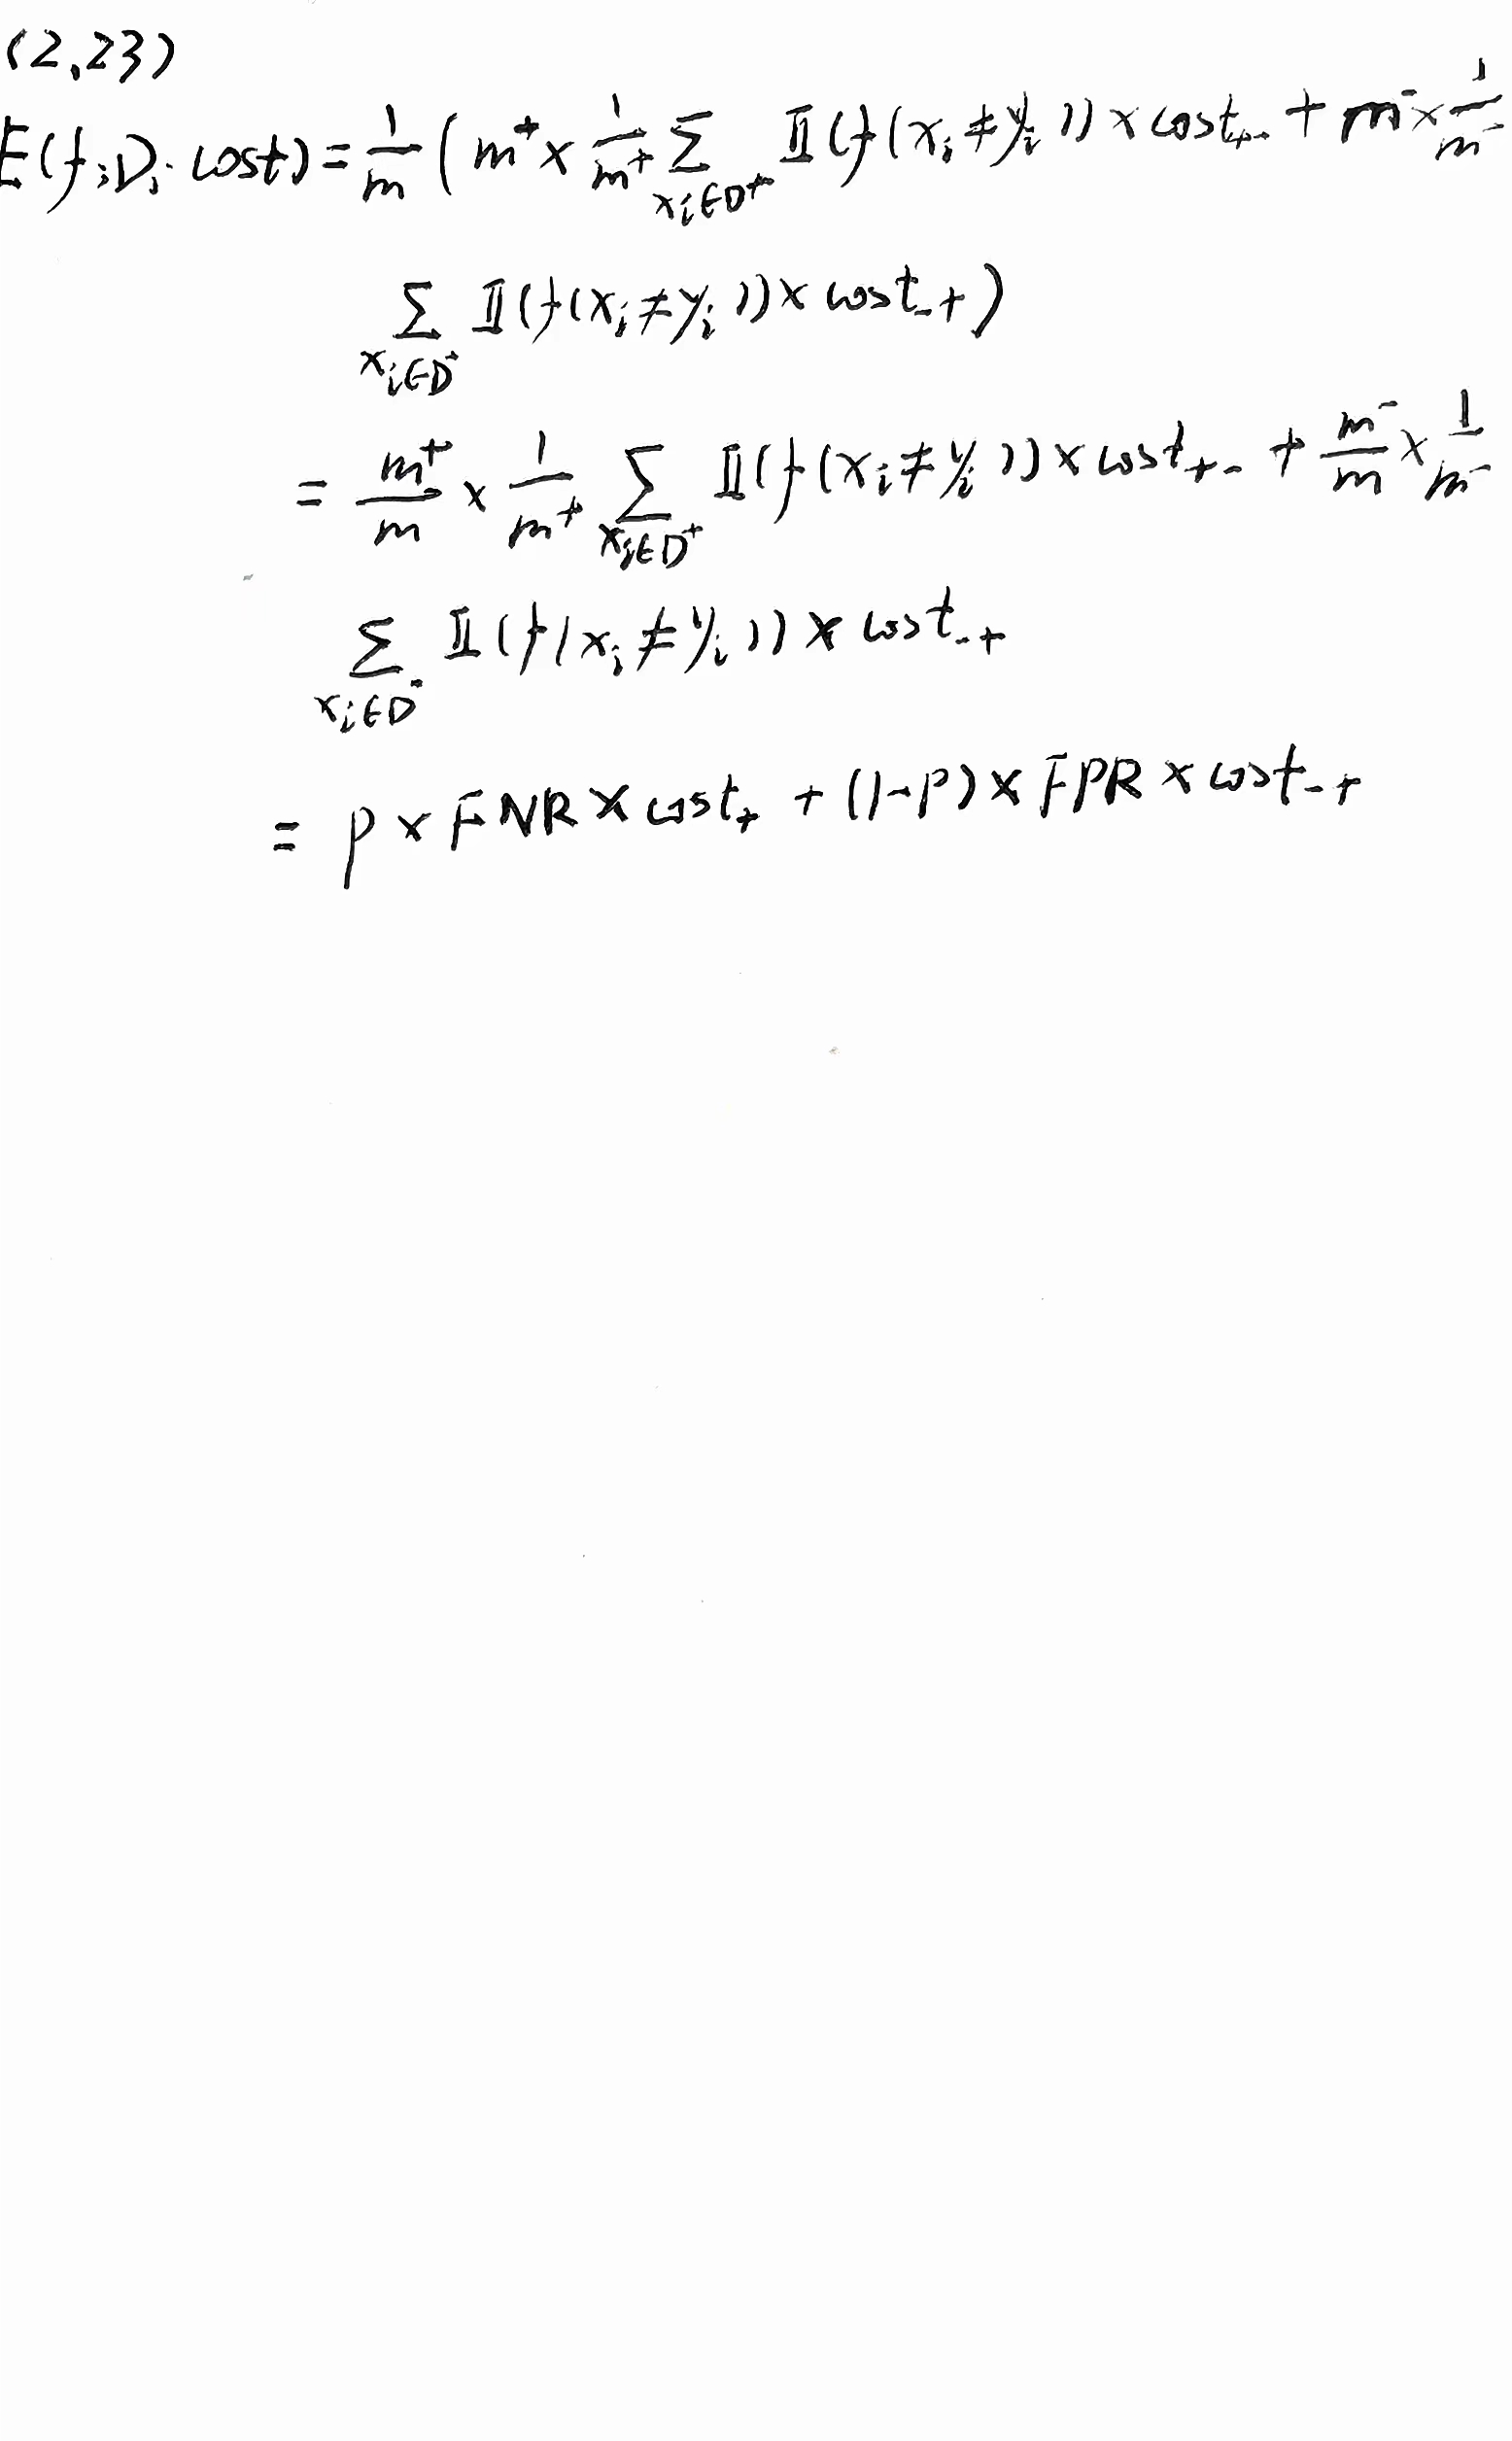 (2,23)
E(f;D;cost)=1/m(m⁺×1/m⁺∑_{xᵢ∈D⁺} 𝕀(f(xᵢ≠yᵢ))×cost₊₋+m⁻×1/m⁻
∑_{xᵢ∈D⁻} 𝕀(f(xᵢ≠yᵢ))×cost₋₊)
=m⁺/m×1/m⁺∑_{xᵢ∈D⁺} 𝕀(f(xᵢ≠yᵢ))×cost₊₋+m⁻/m×1/m⁻
∑_{xᵢ∈D⁻} 𝕀(f(xᵢ≠yᵢ))×cost₋₊
=p×FNR×cost₊+(1-p)×FPR×cost₋₊